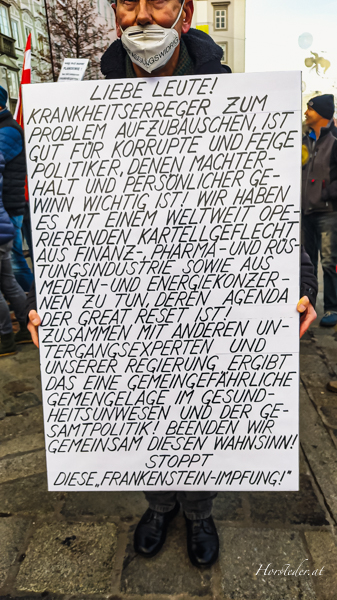 LIEBE LEUTE!
KRANKHEITSERREGER ZUM
PROBLEM AUFZUBAUSCHEN, IST
GUT FÜR KORRUPTE UND FEIGE
POLITIKER, DENEN MACHTER-
HALT UND PERSÖNLICHER GE-
WINN WICHTIG IST! WIR HABEN
ES MIT EINEM WELTWEIT OPE-
RIERENDEN KARTELLGEFLECHT
AUS FINANZ-, PHARMA- UND RÜS-
TUNGSINDUSTRIE SOWIE AUS
MEDIEN- UND ENERGIEKONZER-
NEN ZU TUN, DEREN AGENDA
DER GREAT RESET IST!
ZUSAMMEN MIT ANDEREN UN-
TERGANGSEXPERTEN UND
UNSERER REGIERUNG, ERGIBT
DAS EINE GEMEINGEFÄHRLICHE
GEMENGELAGE IM GESUND-
HEITSUNWESEN UND DER GE-
SAMTPOLITIK! BEENDEN WIR
GEMEINSAM DIESEN WAHNSINN!
STOPPT
DIESE „FRANKENSTEIN-IMPFUNG!"
Horsleder.at